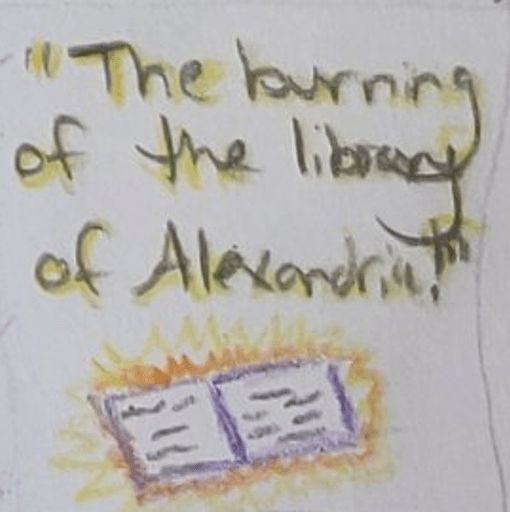 "The burning
of the library
of Alexandria!"